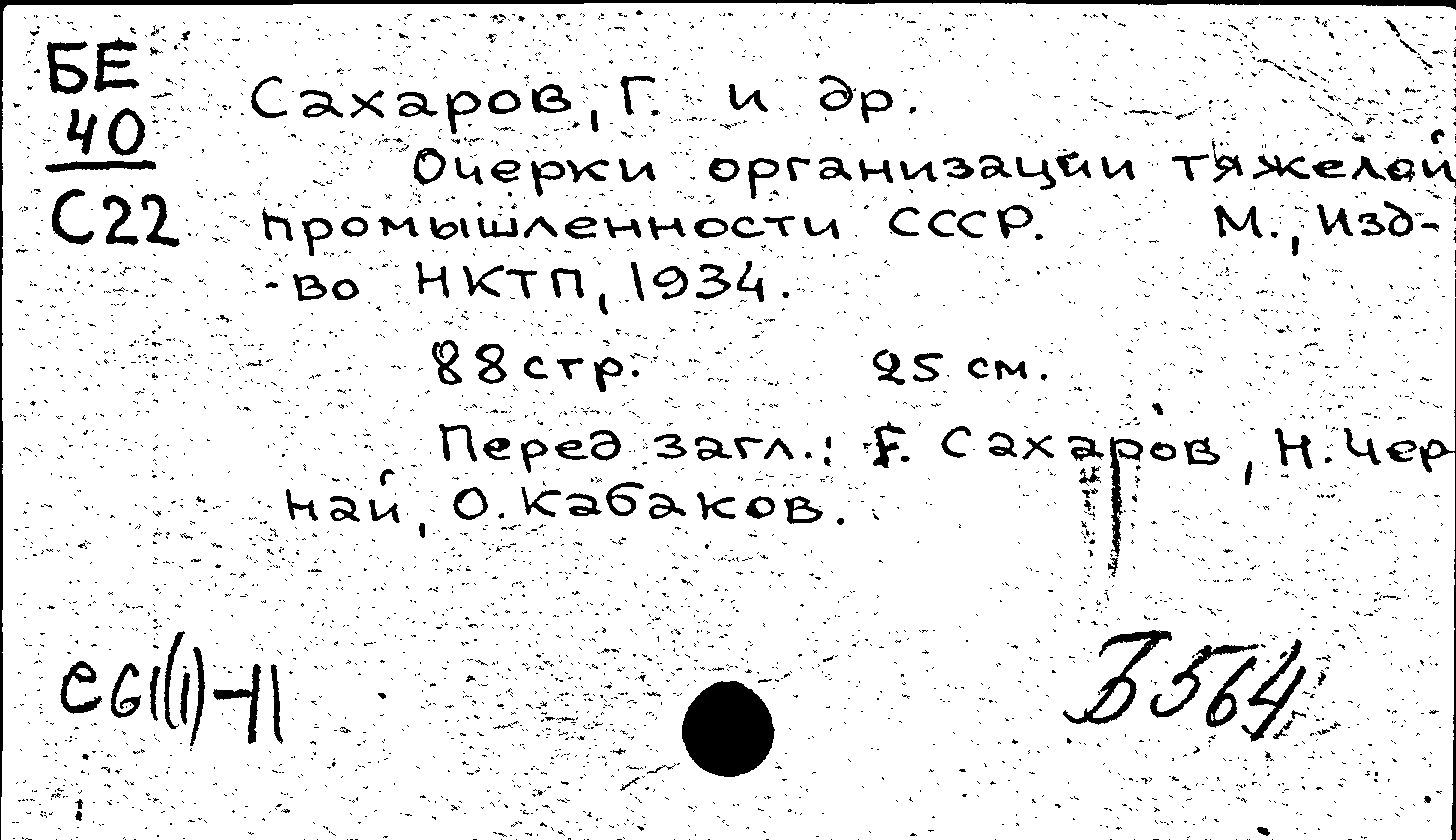 БЕ
40
С22
Сахаров, Г. и др.
Очерки организации тяжелой
промышленности СССР. М., Изд-
-во НКТП, 1934.
88 стр. 25 см.
Перед загл.: Г. Сахаров, Н. Чер
най, О. Кабаков.
е61(1)-11
Б564